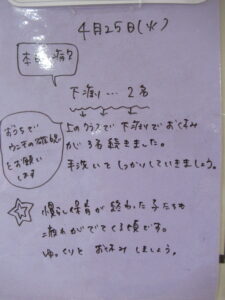 4月25日(火)
本日の病欠
下痢り… 2名
おうちで
ウンチの確認
をお願い
します
上のクラスで下痢りでおやすみ
が3名続きました。
手洗いをしっかりしていきましょう。
慣らし保育が終わった子たちも
疲れがでてくる頃です。
ゆっくりとお休みしましょう。